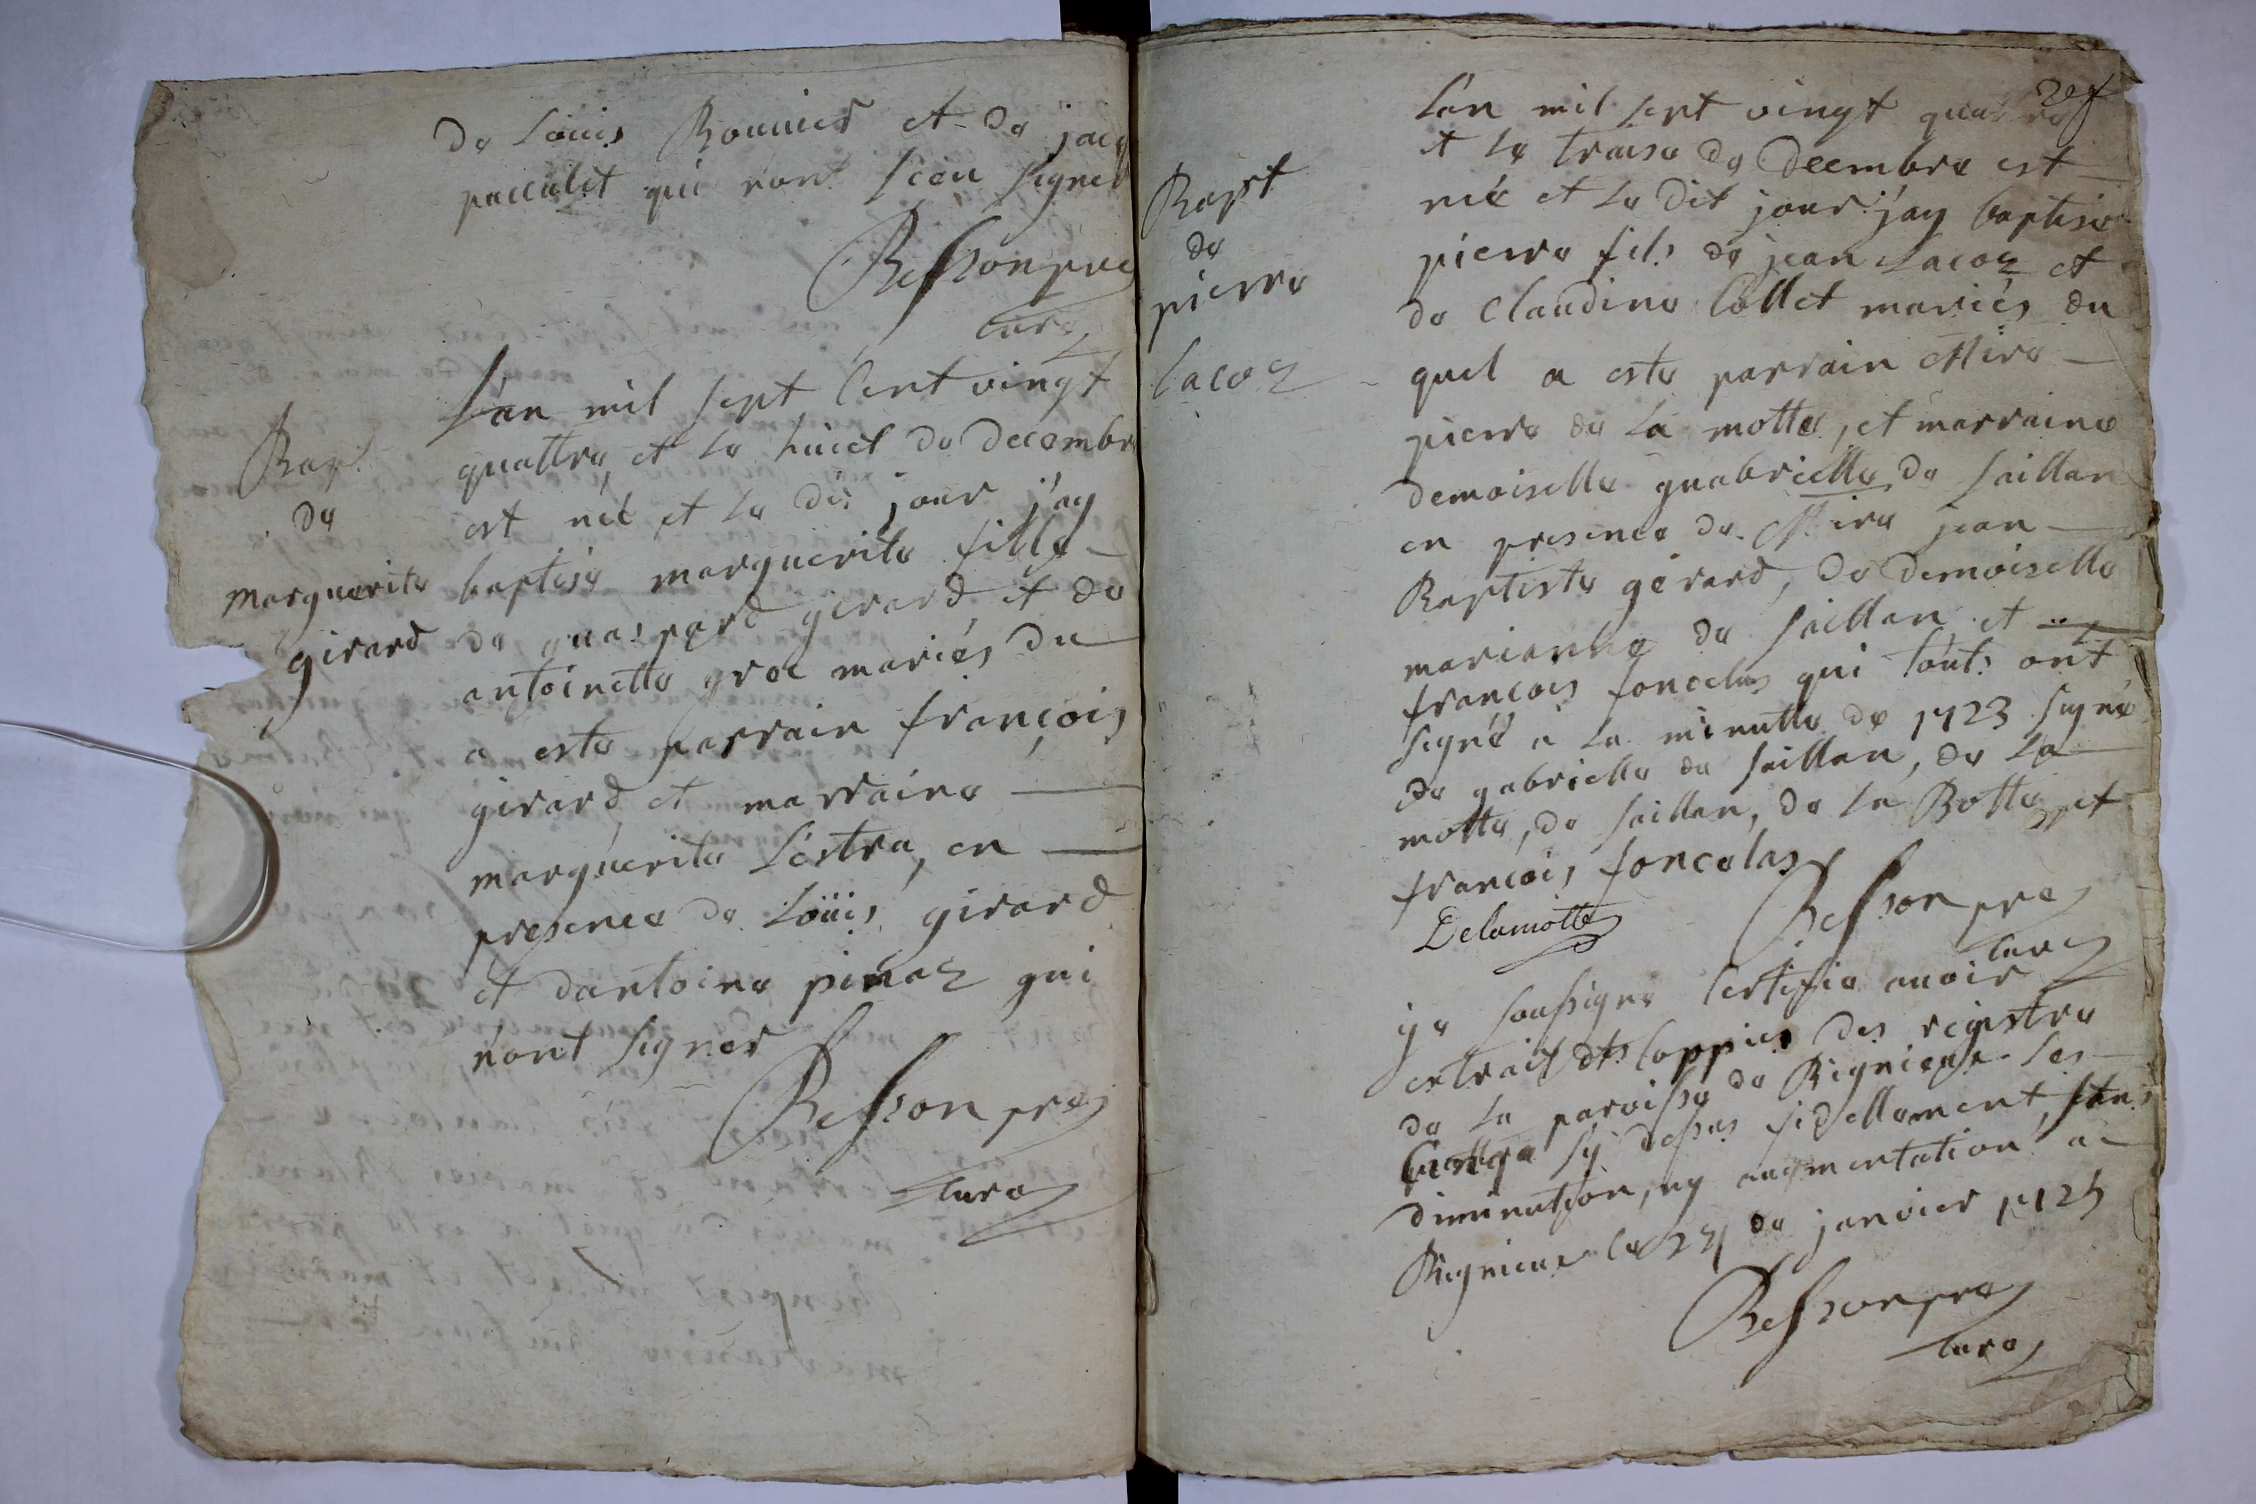 de Loüis Bonnier et de jacq
paccalet qui n'ont sceu signer
Besson pre
curé
L'an mil sept Cent vingt
quattre, et le huict de decembre
Bap.
de
marguerite
girard
est néé et le dit jour j'ay
baptisé marguerite fille
de guaspard girard et de
antoinette groz mariés du
a este parrain françois
girard, et marraine
marguerite Lestra, en
presence de Loüis girard
et d'antoine pinaz qui
n'ont signer
Besson pre
curé
Bapt
de
pierre
Lacoz
L'an mil sept vingt quattre
et le traise de decembre est
néé et le dit jour j'ay baptisé
pierre fils de jean Lacoz et
de Claudine Collet mariés du
quel a este parrain Mire
pierre de La motte, et marraine
demoiselle guabrielle de saillan
en presence de Mire jean
Baptiste gérard, de demoiselle
marianne de saillan et
françois foncelas qui touts ont
signé a la minutte de 1723 signé
de gabrielle de saillan, de La
motte, de saillan, de La Botte, et
françois foncelas
Delamotte
Besson pre
curé
je soussigne Certifie auoir
extrait dts Coppies des registre
de la paroisse de Rignieux Les
cy dessus fidellement, sans
diminution, ny augmentation a
Rignieux Le 24 de janvier 1725
Besson pre
curé